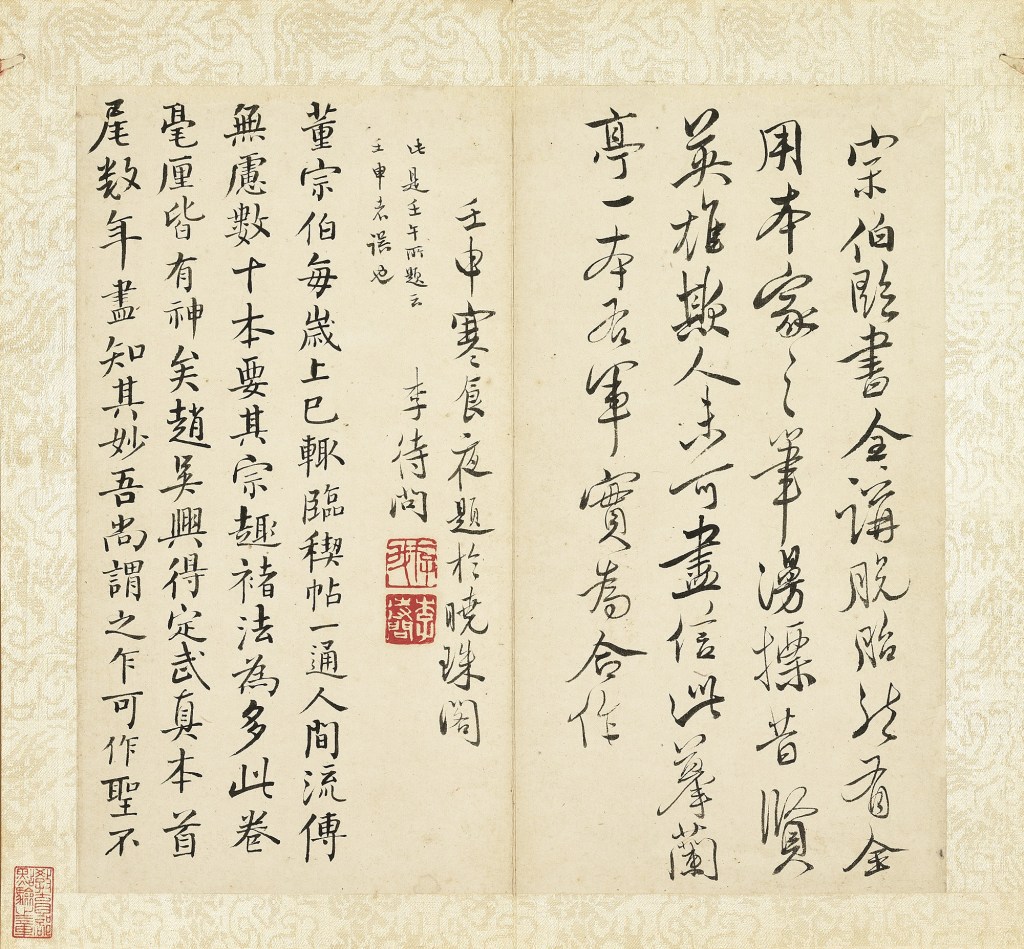 宗伯臨書全講脫胎然有全
用本家之筆漫摽昔賢
英雄欺人未可盡信此摹蘭
亭一本右軍實為合作
壬申寒食夜題於曉珠閣
此是壬午所題云
壬申者誤也
李待問
存我
李待問
董宗伯每歲上巳輒臨稧帖一通人間流傳
無慮數十本要其宗趣褚法為多此卷
毫厘皆有神矣趙吳興得定武真本首
尾数年盡知其妙吾尚謂之乍可作聖不
教育部點驗之章